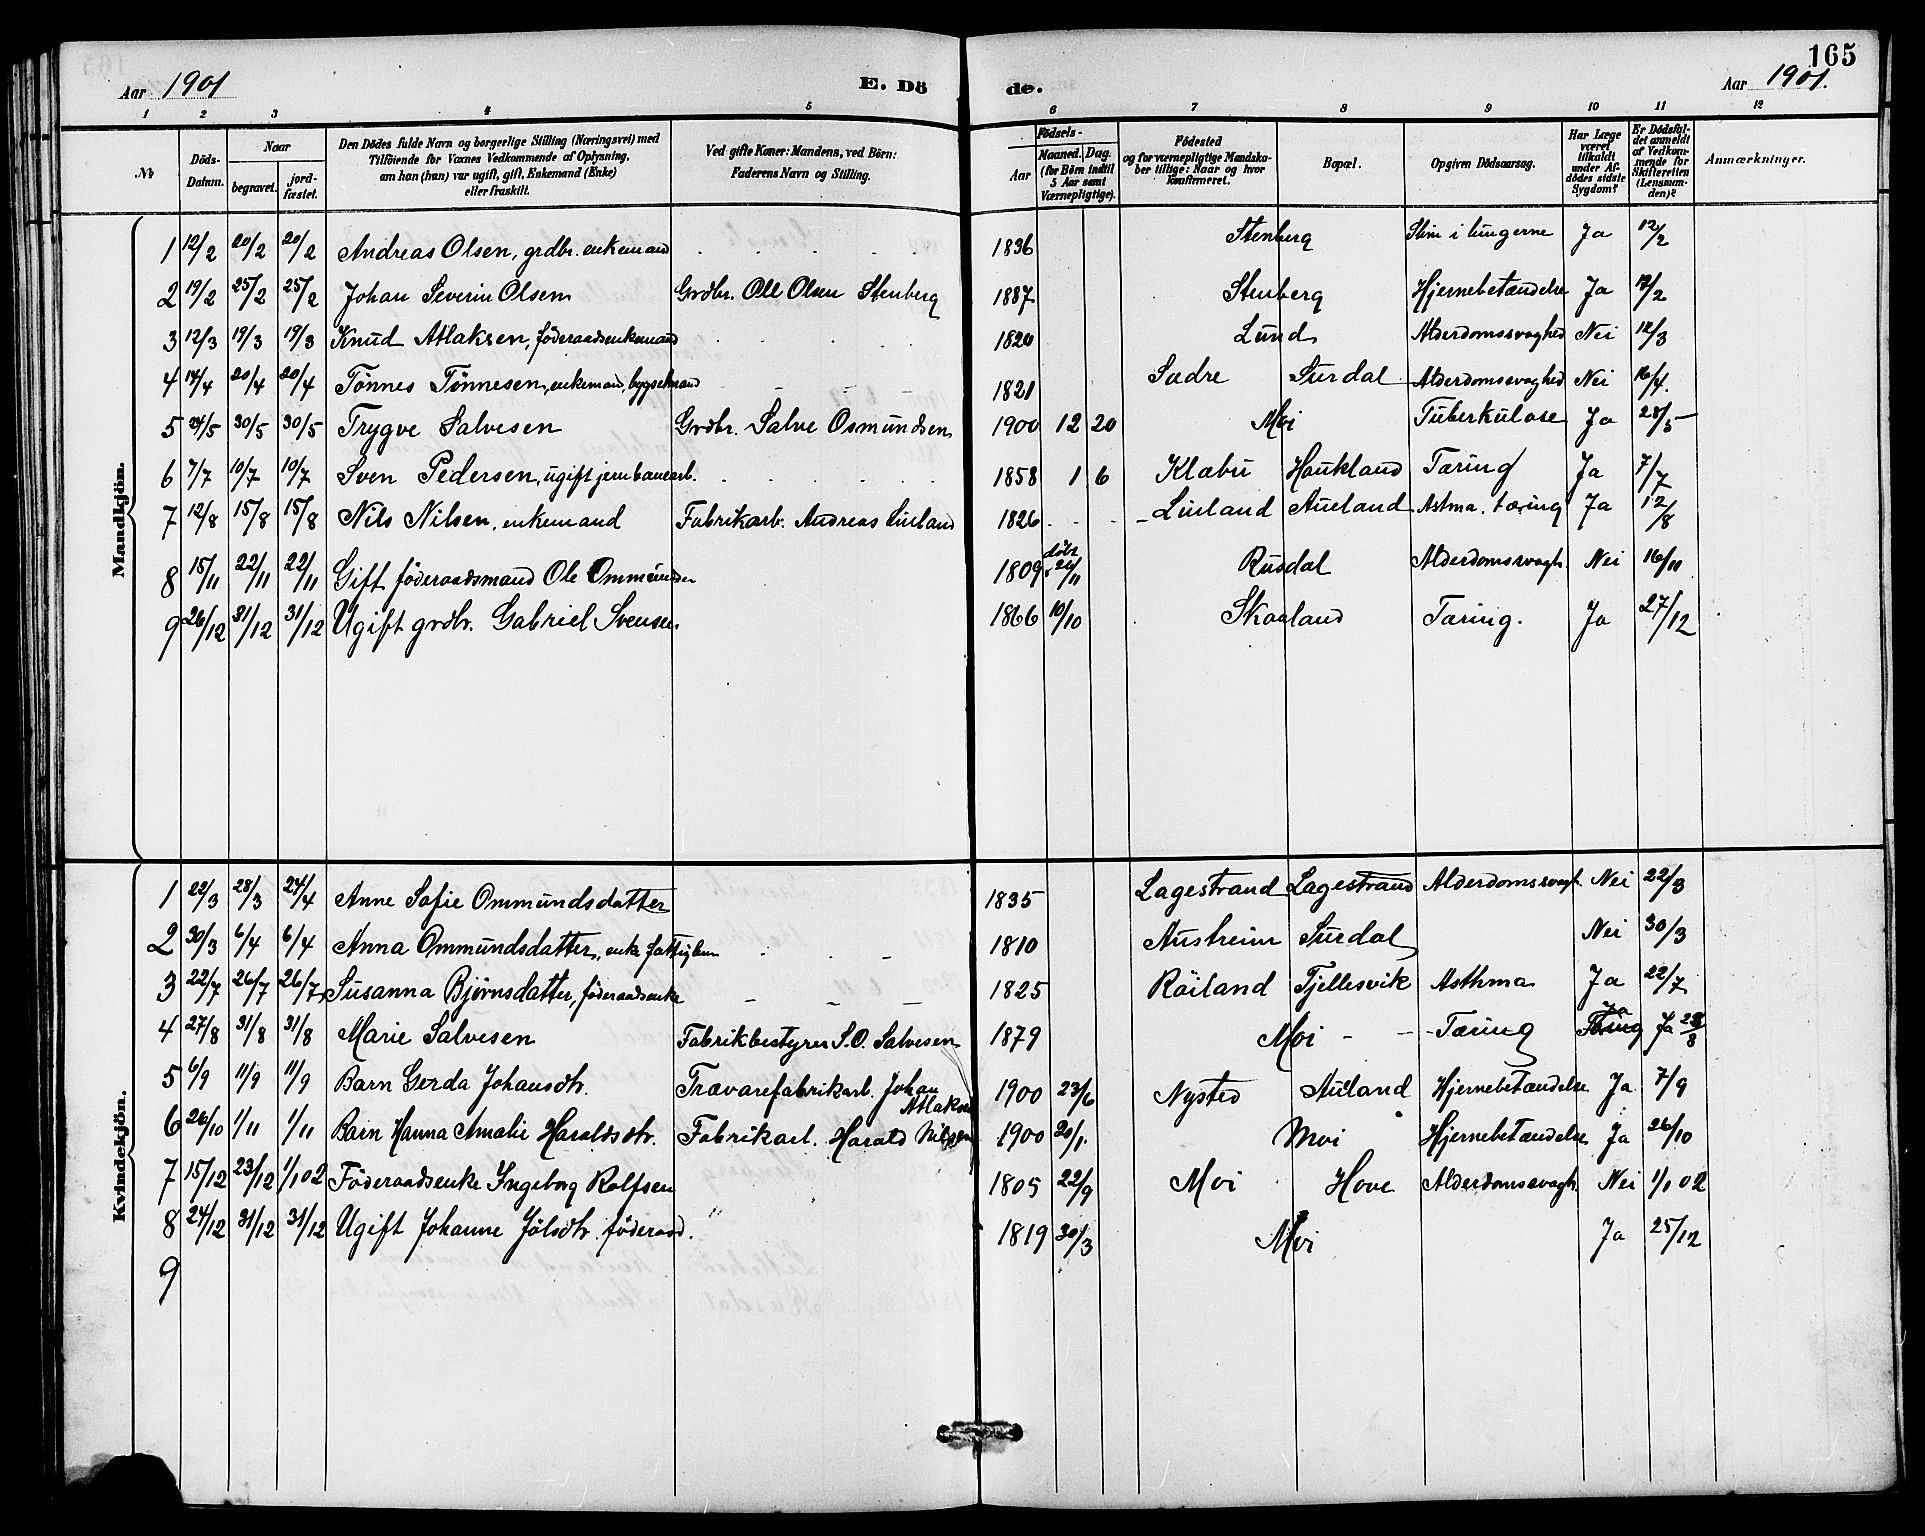 165
Aar 1901
E. Dö
de.
Aar 1901.
1 2 3 4 5 6 7 8 9 10 11 12
№
Döds-
Datum.
Naar
begravet.
jord-
fæstet.
Den Dödes fulde Navn og borgerlige Stilling (Næringsvei) med
Tilföiende for Voxnes Vedkommende af Oplysning,
om han (hun) var ugift, gift, Enkemand (Enke)
eller fraskilt.
Ved gifte Koner: Mandens, ved Börn:
Faderens Navn og Stilling.
Födsels-
Aar
Maaned. Dag.
(for Börn indtil
5 Aar samt
Værnepligtige).
Födested
og for værnepligtige Mandska-
ber tillige: Naar og hvor
konfirmeret.
Bopæl.
Opgiven Dödsaarsag.
Har Læge
været
tilkaldt
under Af-
dödes sidste
Sygdom?
Er Dödsfal-
det anmeldt
af Vedkom-
mende for
Skifteretten
(Lensman-
den)?
Anmærkninger.
Mandkjön.
1 12/2 20/2 20/2 Andreas Olsen, grdbr. enkemand 1836 Stenberg i lungerne Ja 12/2
2 19/2 25/2 25/2 Johan Severin Olsen Grdbr. Ole Olsen Stenberg 1887 Stenberg Hjernebetændelse Ja 19/2
3 12/3 19/3 19/3 Knud Atlaksen, föderaadsenkemand 1820 Lund Alderdomssvaghed Nei 12/3
4 14/4 20/4 20/4 Tönnes Tönnesen, enkemand, bygselmand 1821 Sædre Surdal Alderdomssvaghed Nei 16/4.
5 24/5 30/5 30/5 Trygve Salvesen Grdbr. Salve Osmundsen 1900 12 20 Moi Tuberkulose Ja 28/5
6 7/7 10/7 10/7 Sven Pedersen, ugift jernbanearb. 1858 1 6 Klæbu Haukland Tæring Ja 7/7
7 12/8 15/8 15/8 Nils Nilsen, enkemand Fabrikarb. Andreas Liuland 1826 Liuland Aueland Astma, tæring Ja 12/8
8 15/11 22/11 22/11 Gift föderaadsmand Ole Ommundsen 1809 döbt 26/11 Rusdal Alderdomssvagh. Nei 16/11
9 26/12 31/12 31/12 Ugift grdbr. Gabriel Svensen. 1866 10/10 Skaaland Tæring. Ja 27/12
Kvindekjön.
1 22/3 28/3 24/4 Anne Sofie Ommundsdatter 1835 Lagestrand Lagestrand Alderdomssvagh. Nei 22/3
2 30/3 6/4 6/4 Anna Ommundsdatter, enke fattiglem 1810 Austreim Surdal Nei 30/3
3 22/7 26/7 26/7 Susanna Bjørnsdatter, föderaadsenke 1825 Röiland Tjellesvik Asthma Ja 22/7
4 27/8 31/8 31/8 Marie Salvesen Fabrikbestyrer S.O. Salvesen 1879 Moi - - Tæring Ja Tæring Ja 28/8
5 6/9 11/9 11/9 Barn Gerda Johansdtr. Trævarefabrikarb. Johan
Atlaksen 1900 23/6 Nysted Aueland Hjernebetændelse Ja 7/9
6 26/10 1/11 1/11 Barn Hanna Amalie Haraldsdtr. Fabrikarb. Harald Nilssen 1900 20/1. Moi Hjernebetændelse Ja 26/10
7 15/12 23/12 1/1 02 Föderaadsenke Ingeborg Rolfsen 1805 22/9 Moi Hove Alderdomssvagh. Nei 1/1 02
8 24/12 31/12 31/12 Ugift Johanne Jölsdtr. föderaad. 1819 30/3 Moi Ja 25/12
9